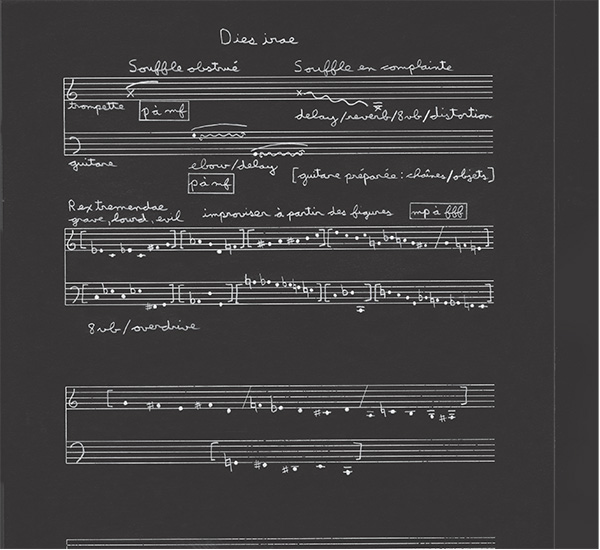 Dies irae
Souffle obstrué Souffle en complainte
trompette p à mf delay/reverb/8vb/distortion
guitare ebow/delay [guitare préparée: chaînes/objets]
p à mf
Rex tremendae
grave, lourd, evil improviser à partir des figures mp à fff
8vb/overdrive